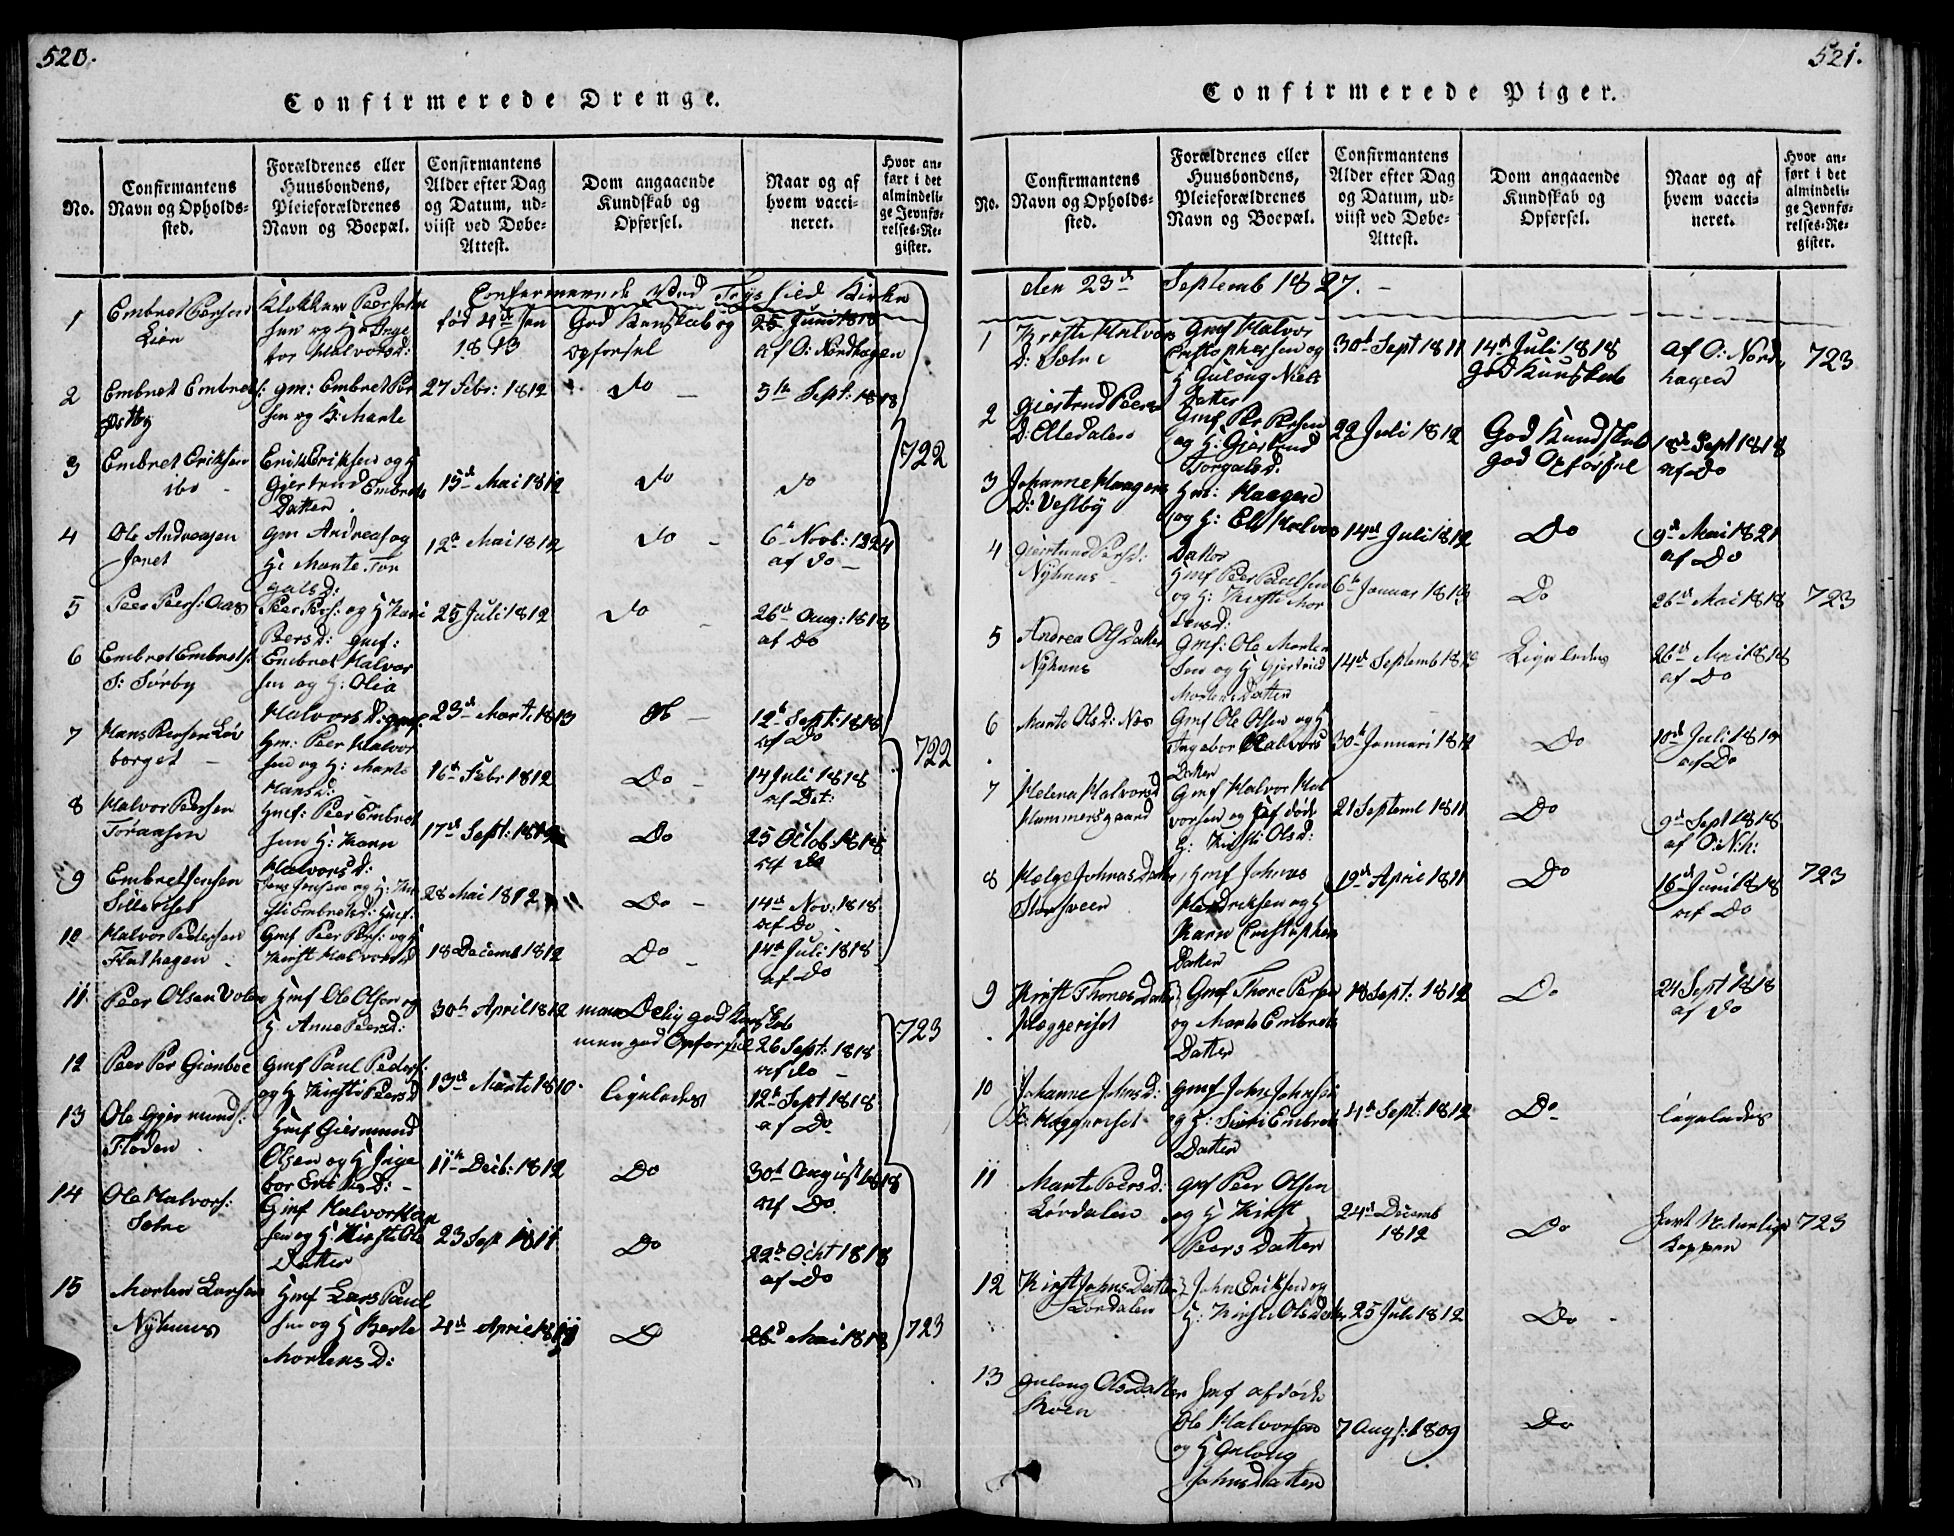 520.
Confirmerede Drenge.
No.
Confirmantens
Navn og Opholds-
sted.
Forældrenes eller
Huusbondens,
Pleieforældrenes
Navn og Boepæl.
Confirmantens
Alder efter Dag
og Datum, ud-
viist ved Døbe-
Attest.
Dom angaaende
Kundskab og
Opførsel.
Naar og af
hvem vacci-
neret.
Hvor an-
ført i det
almindeli-
ge Jevnfø-
relses-Re-
gister.
Confermerede ved Trysild Kirke
1
Embret Persen
Lien
Klokker Peer John
sen og H: Inge
bor Halvorsd:
fød 4de Jan
1813
God Kunskab og
opførsel
25 Juni 1818
af O: Nordhagen
2
Embret Embrets:
Østby
gm: Embret Per
sen og H: Marte
27 Febr: 1812
do
5te Sept: 1818
3
Embret Eriksen
ibo
Erik Eriksen og H
Giertrud Embrets
Datter
15de Mai 1812
do
do
722
4
Ole Andreasen
Jonet
gm Andreas og
H: Marte Tor
galsd:
12te Mai 1812
do
6te Novb: 1824
af do
5
Peer Peers: Aas
Peer Pers: og H Kari
Peersd: gmf:
25 Juli 1812
do
26de Aug: 1818
af Do
6
Embret Embrets:
S: Sørby
Embret Halvor
sen og H: Olia
Halvorsd: gmf
23de Marti 1813
do
12te Sept: 1818
af Do
7
Hans Persen Løv
borget
Hm: Peer Halvor
sen og H: Marte
Hansd:
16de Febr 1812
Do
14 Juli 1818
af Det:
722
8
Halvor Persen
Toraasen
Hmf: Peer Embret
sen H: Karn
Halvorsd:
17de Sept: 1812
Do
25 Octob 1818
af do
9
Embret Jensen
Jens Jensen og H: Kir
sti Embretsd: Hmf:
28 Mai 1812
Do
14de Nov: 1818
af Do
10
Halvor Pedersen
Flathagen
Gmf Peer Pers: og H
Kirst Halvorsd
18 Decemb 1812
Do
14de Juli 1818
af Do
11
Peer Olsen Volen
Hmf Ole Olsen og
H Anne Peersd:
30te April 1812
maadelig god Kunskab
men god Opførsel
26 Sept: 1818
af do
723
12
Peer Per Grønboe
Gmf Paul Peders:
og H Kirsti Peersd
13de Marti 1810
ligeledes
12te Sept 1818
af Do
13
Ole Gjermunds:
Floden
Hmf Giermund
Olsen og H Inge
bor Eriksd:
11te Decb: 1812
Do
30te August 1818
af Do
14
Ole Halvors:
Setre
Gmf Halvor
sen og H: Kirsti Ole
Datter
23 Sep 1811
Do
22de Ocht 1818
af Do
15
Morten Larsen
Nyhuus
Hmf Lars Paul
sen og H Berte
Mortensd:
4de April 1811
D
26de Mai 1818
723
521.
Confirmerede Piger.
No.
Confirmantens
Navn og Opholds-
sted.
Forældrenes eller
Huusbondens,
Pleieforældrenes
Navn og Boepæl.
Confirmantens
Alder efter Dag
og Datum, ud-
viist ved Døbe-
Attest.
Dom angaaende
Kundskab og
Opførsel.
Naar og af
hvem vacci-
neret.
Hvor an-
ført i det
almindeli-
ge Jevnfø-
relses-Re-
gister.
den 23de Septemb 1827.
1
Kirsti Halvors
D: Setre
Gmf Halvor
Cristophersen og
H Gulong Niels
Datter
30te Sept 1811
14de Juli 1818
God Kunskab
af O: Nord,
hagen
723
2
Giertrud Peers
D: Elledalen
Gmf Per Persen
og H: Giertrud
Torgalsd:
22 Juli 1812
God Kundskab
god Opførsel
18de Sept 1818
af Do
3
Johanne Haagens
D: Vestby
Hm: Haagen
og H: Eli Halvors
Datter
14de Juli 1812
Do
9de Mai 1821
af Do
4
Giertrud Persd:
Nyhuus
Hmf Peer Paulsen
og H: Kirsti Mor
tensd:
6te Januar 1813
Do
26de Mai 1818
723
5
Andrea Ols Datter
Nyhuus
Gmf: Ole Morten
sen og H Gjertrud
Mortens Datter
14de Septemb 1812
Ligeledes
26de Mai 1818
af Do
6
Marte Olsd: Nes
Gmf Ole Olsen og H
Ingebor Halvors
Datter
30te Januari 1812
Do
10de Juli 1819
af Do
7
Helena Halvorsd
Hammersgaard
Gmf Halvor Hal
vorsen og Hs døde
H: Kirsti Olsd:
21 Septemb 1811
Do
9de Sept 1818
af O: N: h:
8
Helge Johnas Datter
Storsveen
Hmf Johnas
Hendriksen og H
Karn Cristophers
Datter
19de April 1811
Do
16de Juni 1818
af Do
723
9
Kirsti Thores Datter
Hæggeriset
Gmf Thore Persen
og Marte Embrets
Datter
18 Sept: 1812
Do
24 Sept 1818
af do
10
Johanne Johnsd:
Hæggeriset
Gmf John Johnsen
og H: Siri Embrets
Datter
4de Sept: 1812
Do
ligeledes
11
Marte Peersd:
Lørdalen
Gmf Peer Olsen
og H Kirst
Peers Datter
24de Decemb
1812
Do
havt Naturlige
Kopper
723
12
Kirst Johns Datter
Lørdalen
John Eriksen og
H: Kirsti Ols Datter
25 Juli 1812
Do
13
Gulong Ols Datter
Moen
Hmf afdøde
Ole Halvorsen
og H Gulong
Johnsdatter
7 Augs: 1809
Do